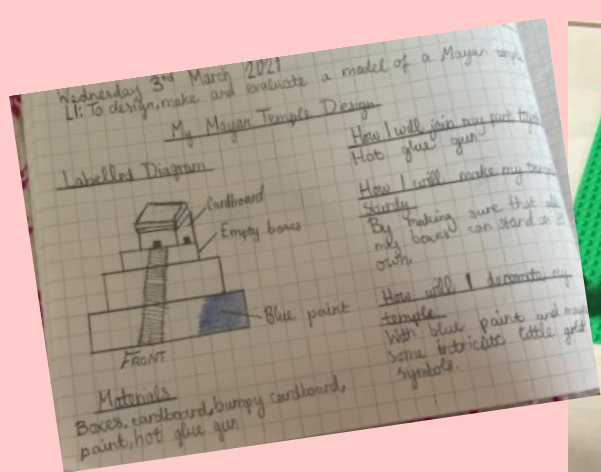 Wednesday 3rd March 2021
LI: To design, make and evaluate a model of a Mayan
My Mayan Temple Design
Labelled Diagram
Cardboard
Empty boxes
Blue paint
FRONT
Materials
Boxes, cardboard, bumpy cardboard,
paint, hot glue gun
How I will join my part
Hot glue gun
How I will make my
sturdy
By making sure that all
my boxes can stand on
own.
How will I decorate my
temple
With blue paint and
some intricate little gold
symbols.